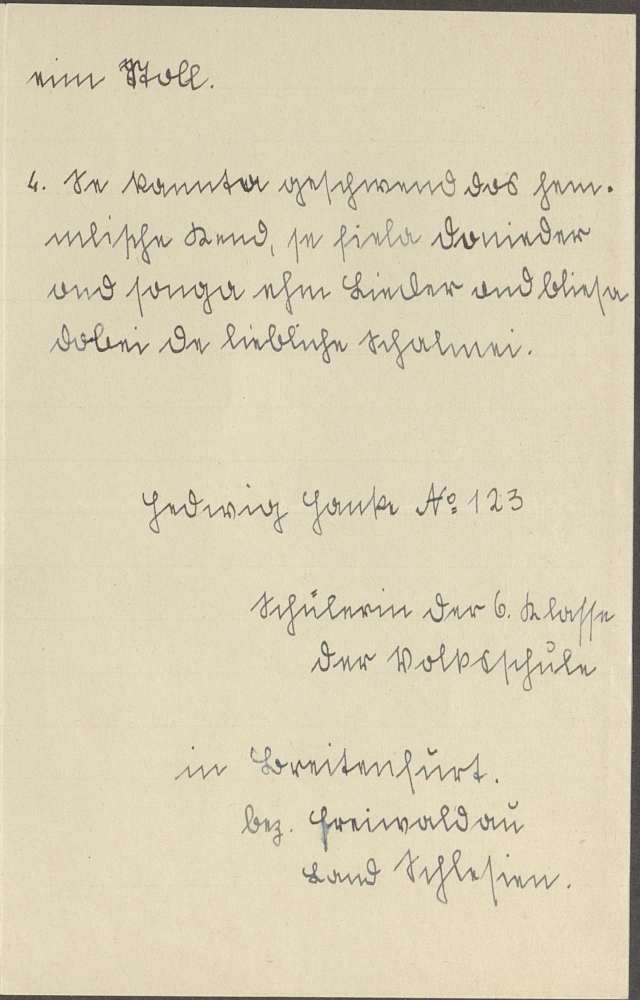 eim Stoll.
4. Se kannta geschwend dos hem-
mlische Kend, se fiela donieder
ond songa ehm Lieder ond bliesa
dobei de liebliche Schalmei.
Hedwig Hanke № 123
Schülerin der 6. Klasse
der Volksschule
in Breitenfurt.
bez. Freiwaldau
Land Schlesien.